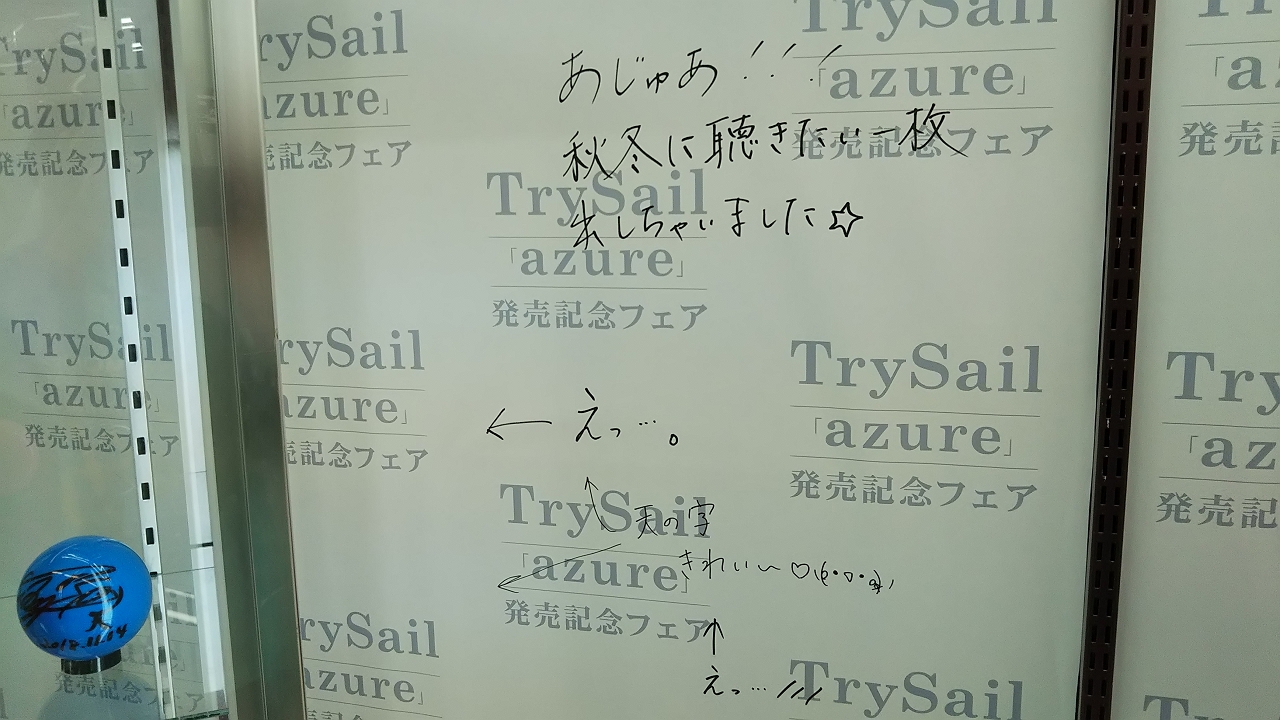 TrySail
「azure」
発売記念フェア
rySail
azure」
記念フェア
TrySail
「azure」
発売記念フェア
「a
発売記
あじゅあ!!!
秋冬に聴きたい一枚
出しちゃいました☆
TrySail
「azure」
発売記念フェア
TrySail
「azure」
発売記念フェア
rySail
azure」
記念フェア
TrySail
「azure」
発売記念フェア
Try
「az
発売記
← えっ…。
TrySail
「azure」
発売記念フェア
天の字
きれい〜♡
↑
えっ…///
2018.11.14
発売記念フェア
rySail
azure」
TrySail